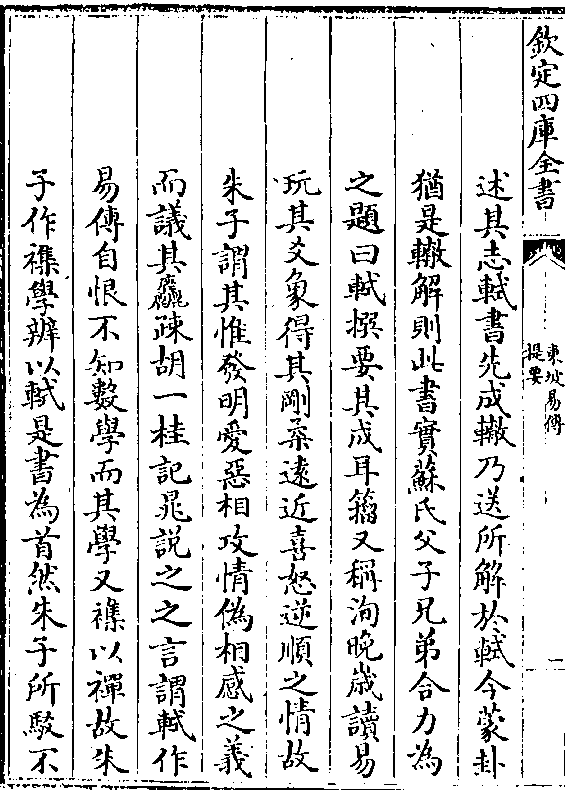 欽定四庫全書
東坡易傳
提要
一
述其志軾書先成轍乃送所解於軾今蒙卦
猶是轍解則此書實蘇氏父子兄弟合力為
之題曰軾撰要其成耳籀又稱洵晚歲讀易
玩其爻象得其剛柔遠近喜怒逆順之情故
朱子謂其惟發明愛惡相攻情偽相感之義
而議其麤疎胡一桂記晁說之之言謂軾作
易傳自恨不知數學而其學又襍以禪故朱
子作襍學辨以軾是書為首然朱子所駁不